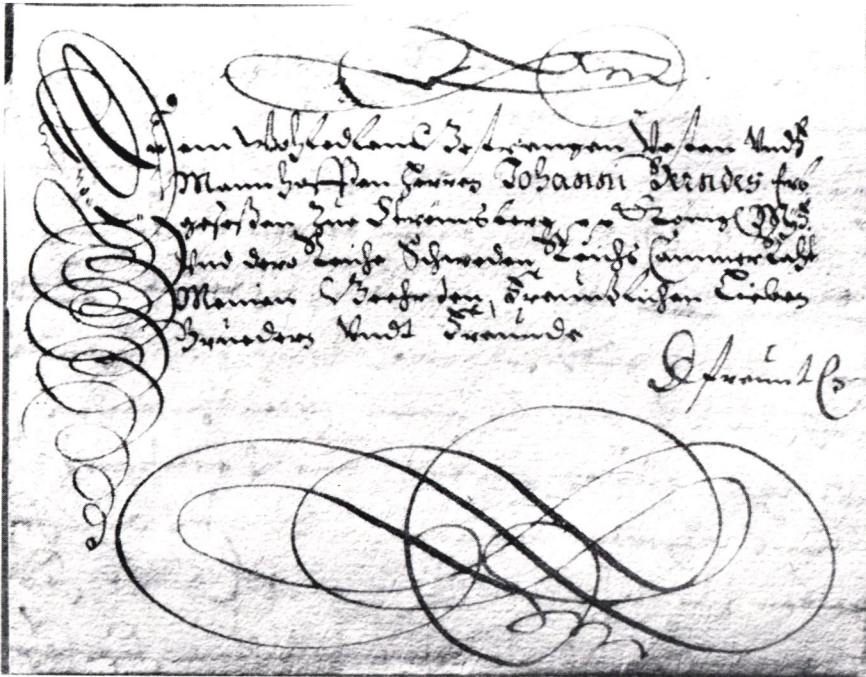 Dem WohlEdlen Gestrengen Vesten Undt
Mannhafften Herren Johann Berndes Erb
gesessen Zue
Und dero Reiche Schweden Reichs CammerRaht
Meinen Geehrten, Freundtlichen Lieben
Bruedern Undt Freunde